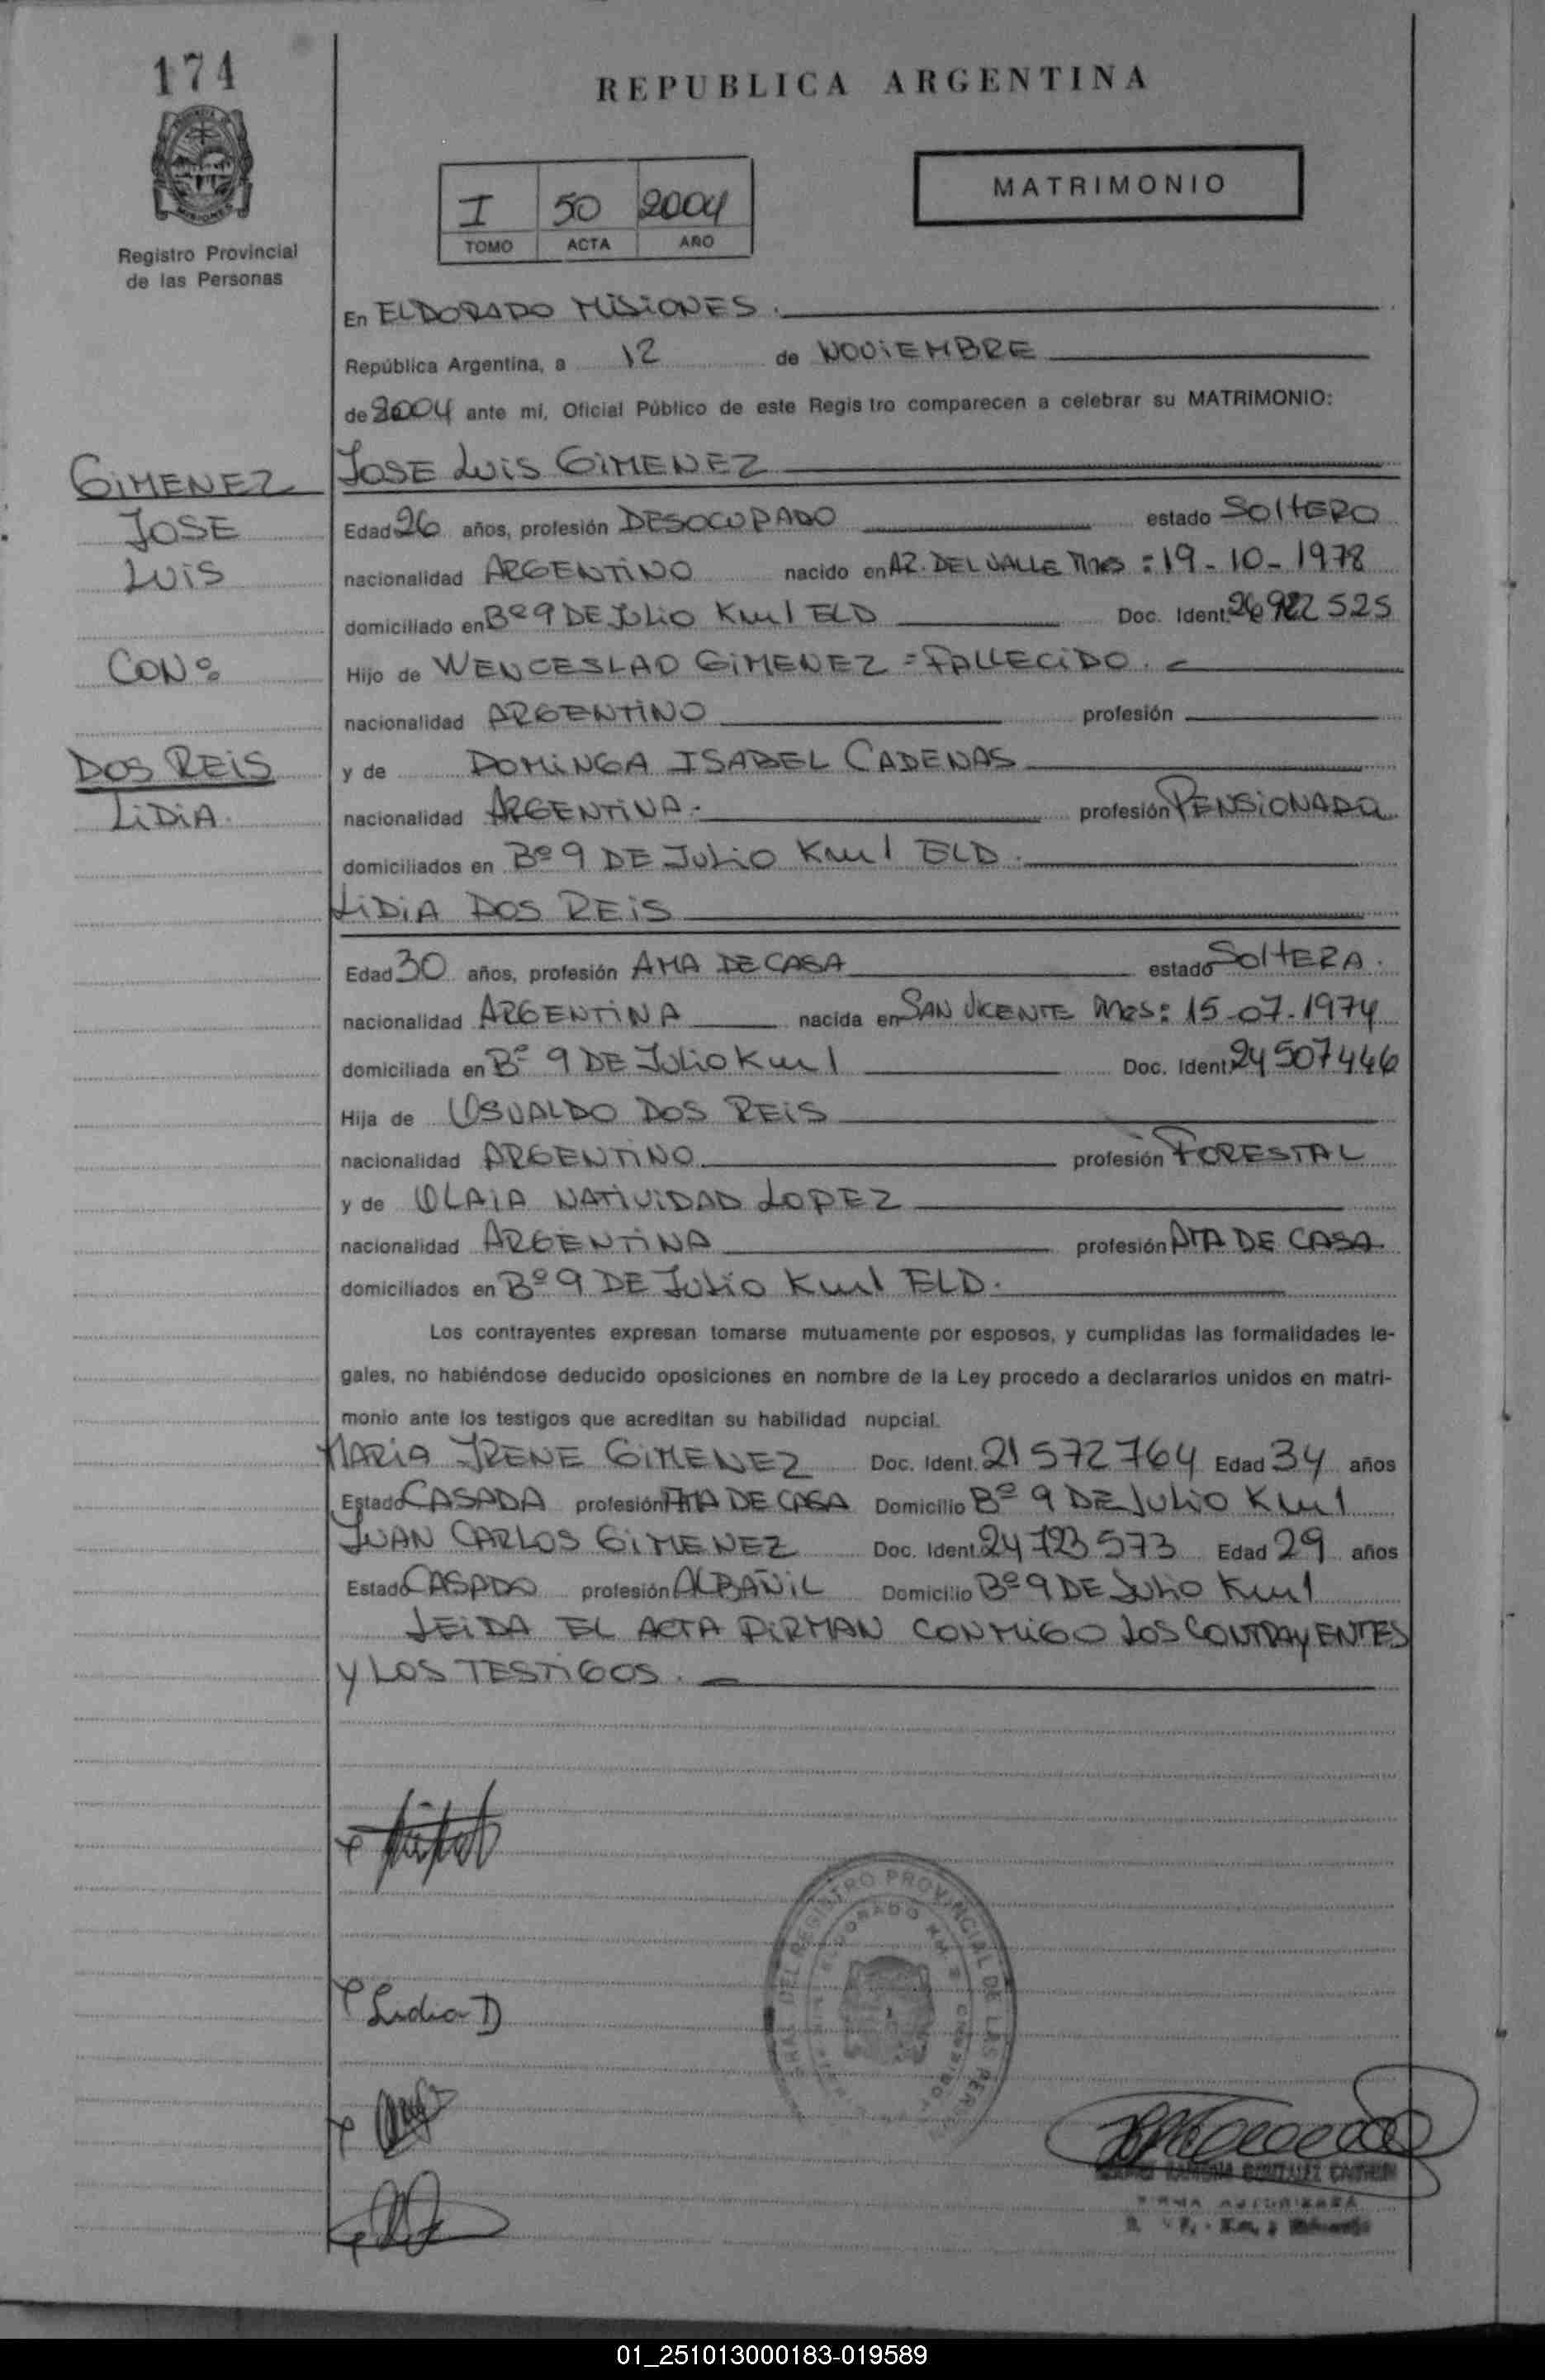 174
REPUBLICA ARGENTINA
MATRIMONIO
I 50 2004
TOMO ACTA AÑO
Registro Provincial
de las Personas
En ELDORADO MiSiONES.
República Argentina, a 12 de NOViEMBRE
de 2004 ante mí, Oficial Público de este Regis tro comparecen a celebrar su MATRIMONIO:
GiMENEZ
JOSE
LUiS
CON:
DOS REiS
LiDiA.
JOSE LUiS GiMENEZ
Edad 26 años, profesión DESOCUPADO estado SOLTERO
nacionalidad ARGENTiNO nacido en AZ. DEL VALLE Mnes : 19-10-1978
domiciliado en Bº 9 DE JULiO Km 1 ELD Doc. Ident. 26 922 525
Hijo de WENCESLAO GiMENEZ = FALLECiDO.
nacionalidad ARGENTiNO profesión
y de DOMiNGA ISABEL CADENAS
nacionalidad ARGENTiNA. profesión PENSiONADA
domiciliados en Bº 9 DE JULiO Km 1 ELD.
LiDiA DOS REiS
Edad 30 años, profesión AMA DE CASA estado SOLTERA.
nacionalidad ARGENTiNA nacida en SAN VICENTE Mnes: 15-07-1974
domiciliada en Bº 9 DE JULiO Km 1 Doc. Ident. 24 507 446
Hija de OSVALDO DOS REiS
nacionalidad ARGENTiNO profesión FORESTAL
y de OLAiA NATiViDAD LOPEZ
nacionalidad ARGENTiNA profesión AMA DE CASA
domiciliados en Bº 9 DE JULiO Km 1 ELD.
Los contrayentes expresan tomarse mutuamente por esposos, y cumplidas las formalidades le-
gales, no habiéndose deducido oposiciones en nombre de la Ley procedo a declararlos unidos en matri-
monio ante los testigos que acreditan su habilidad nupcial.
MARiA IRENE GiMENEZ Doc. Ident. 21 572 764 Edad 34 años
Estado CASADA profesión AMA DE CASA Domicilio Bº 9 DE JULiO Km 1
JUAN CARLOS GiMENEZ Doc. Ident. 24 723 573 Edad 29 años
Estado CASADO profesión ALBAÑiL Domicilio Bº 9 DE JULiO Km 1
LEiDA EL ACTA FiRMAN CONMiGO LOS CONTRAYENTES
Y LOS TESTiGOS.
Lidia D
REGISTRO PROVINCIAL DE LAS
ELDORADO KM.
RAMONA GONZALEZ
FIRMA AUTORIZADA
01_251013000183-019589